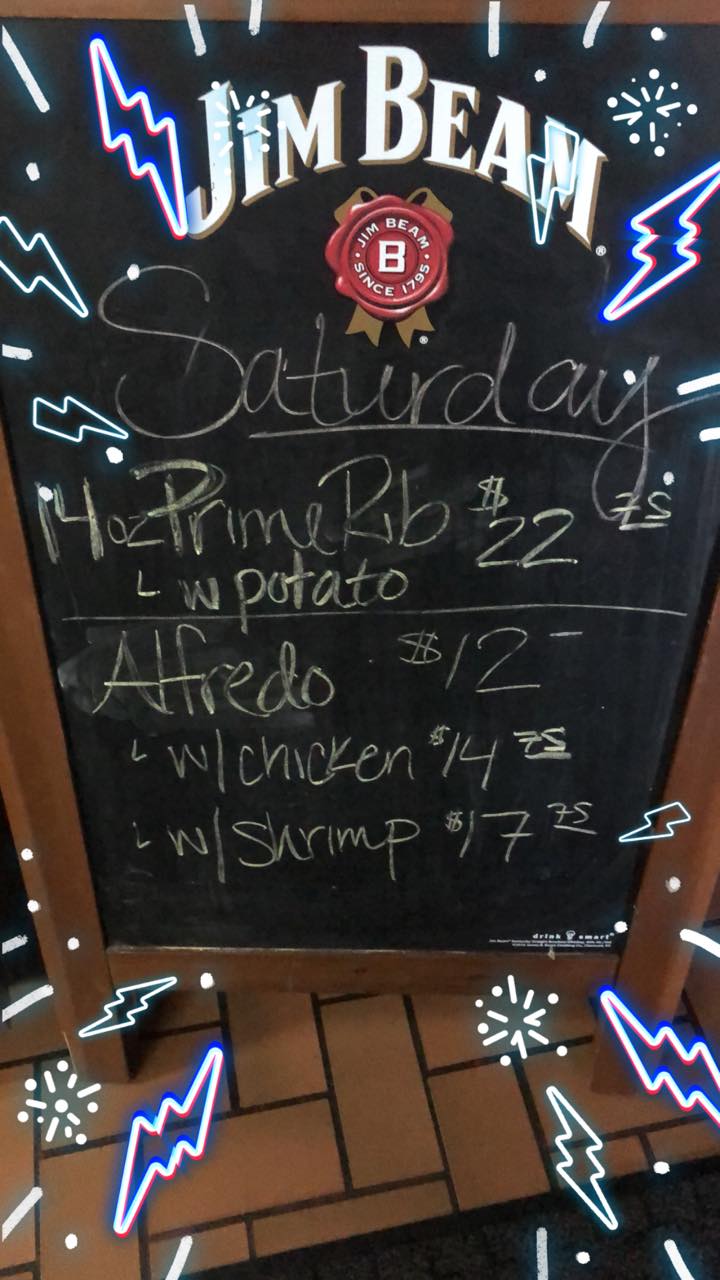 JIM BEAM®
JIM BEAM
B
SINCE 1795
®
Saturday
14oz Prime Rib $22 75
L w potato
Alfredo $12 –
L w/chicken $14 75
L w/shrimp $17 75
drink smart®